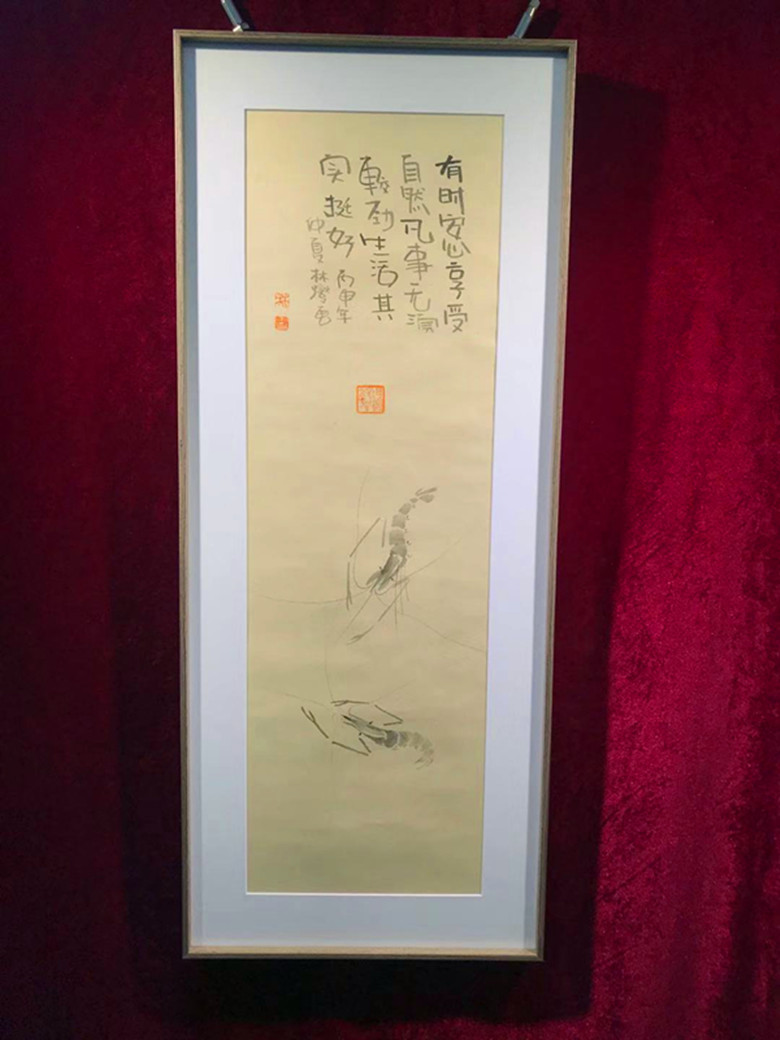 有时安心享受
自然凡事无须
較劲生活其
实挺好 丙申年
仲夏林